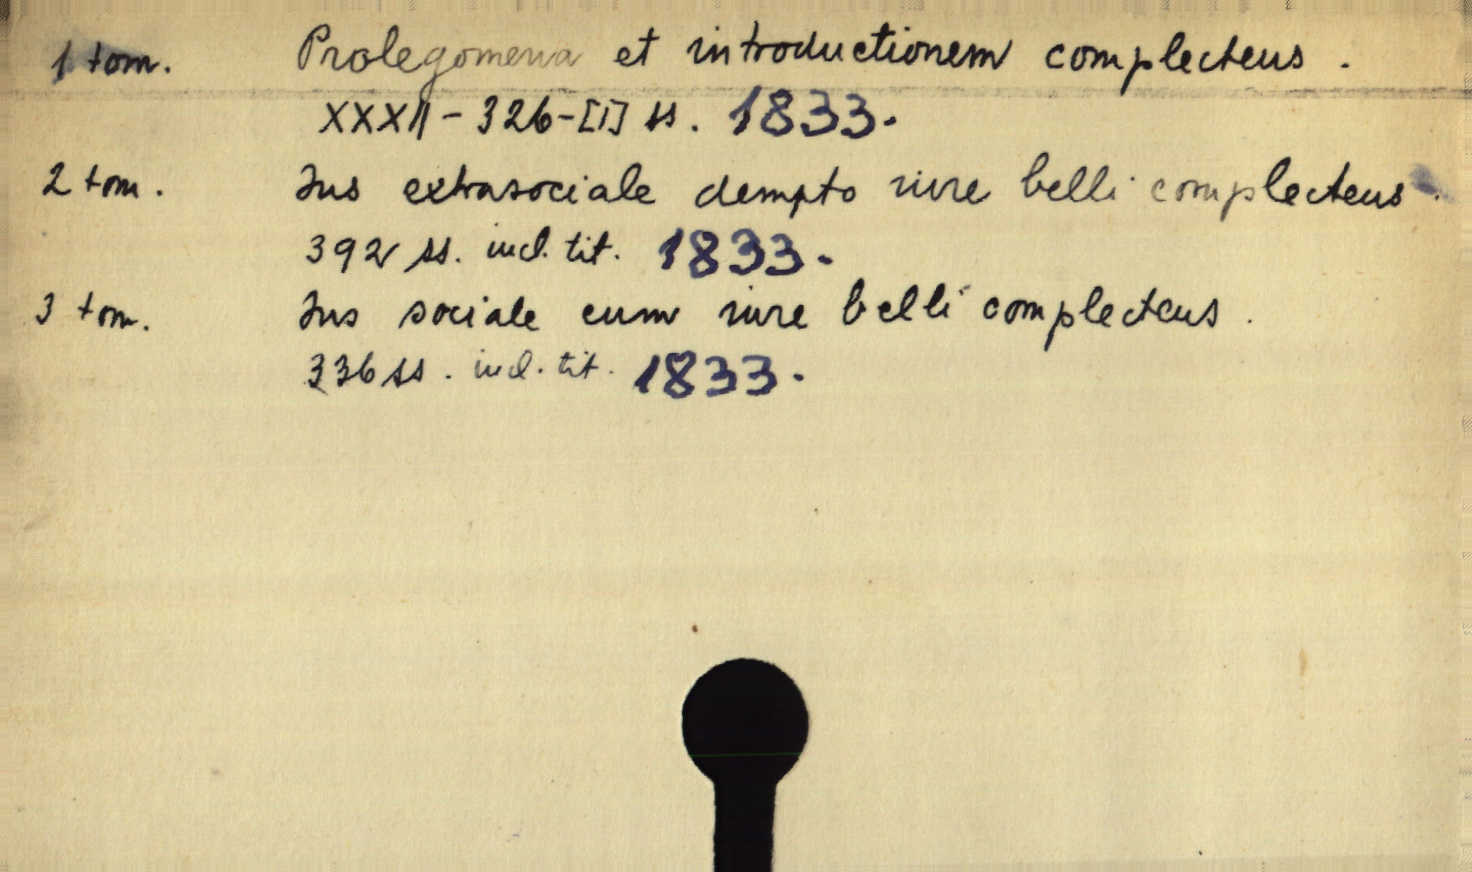 1 tom. Prolegomena et introductionem complectens.
XXXII - 326-[1] ss. 1833.
2 tom. Ius extrasociale dempto iure belli complectens.
392 ss. incl. tit. 1833.
3 tom. Ius sociale cum iure belli complectens.
336 ss. incl. tit. 1833.